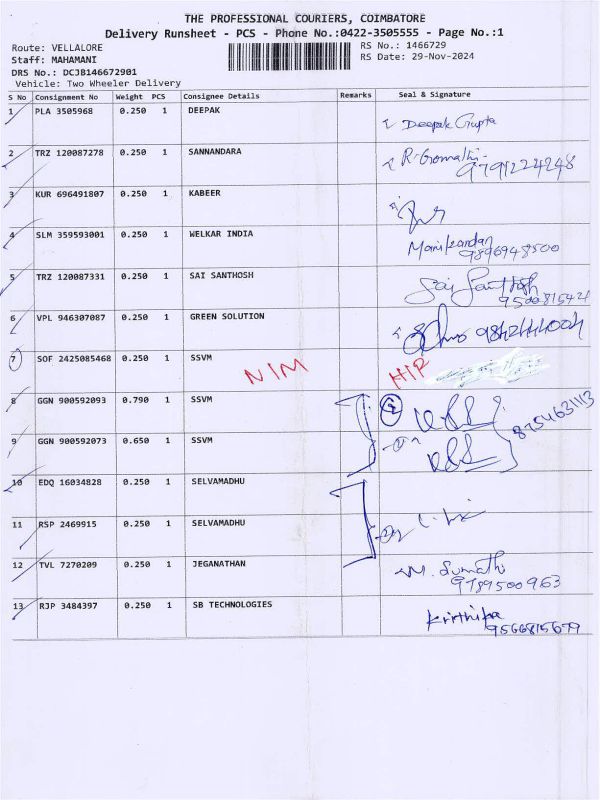 THE PROFESSIONAL COURIERS, COIMBATORE
Delivery Runsheet - PCS - Phone No.:0422-3505555 - Page No.:1
Route: VELLALORE RS No.: 1466729
Staff: MAHAMANI RS Date: 29-Nov-2024
DRS No.: DCJB146672901
Vehicle: Two Wheeler Delivery
S No Consignment No Weight PCS Consignee Details Remarks Seal & Signature
1 PLA 3505968 0.250 1 DEEPAK Deepak Gupta
2 TRZ 120087278 0.250 1 SANNANDARA R. Gomathi
9791224248
3 KUR 696491807 0.250 1 KABEER
4 SLM 359593001 0.250 1 WELKAR INDIA Manikandan
9896948500
5 TRZ 120087331 0.250 1 SAI SANTHOSH Sai Santhosh
9500815421
6 VPL 946307087 0.250 1 GREEN SOLUTION
7 SOF 2425085468 0.250 1 SSVM NIM HIP
8 GGN 900592093 0.790 1 SSVM 2
8754631113
9 GGN 900592073 0.650 1 SSVM
10 EDQ 16034828 0.250 1 SELVAMADHU
11 RSP 2469915 0.250 1 SELVAMADHU
12 TVL 7270209 0.250 1 JEGANATHAN M. Sumathi
9789500963
13 RJP 3484397 0.250 1 SB TECHNOLOGIES Krithika
9566815679